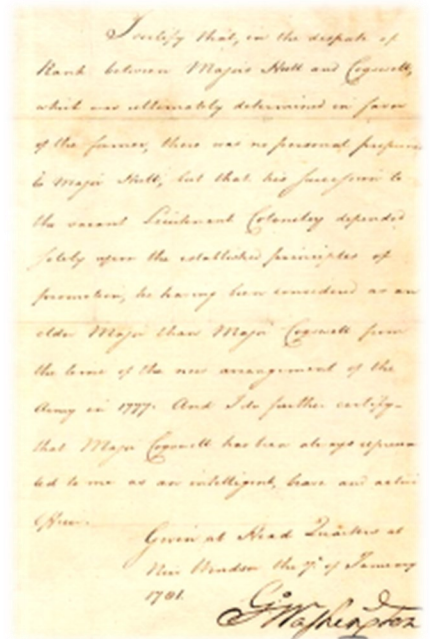 I certify that, in the despute of
Rank between Majors Hull and Cogswell,
which was ultimately determined in favor
of the former, there was no personal
to Major Hull, but that his succession to
the vacant Lieutenant Colonelcy depended
solely upon the established principles of
promotion, he having been considered as an
older Major than Major Cogswell from
the time of the new arrangement of the
Army in 1777. And I do further certify
that Major Cogswell has been always represen
ted to me as an intelligent, brave and active
Officer.
Given at Head Quarters at
New Windsor the of January
1781.
Go Washington